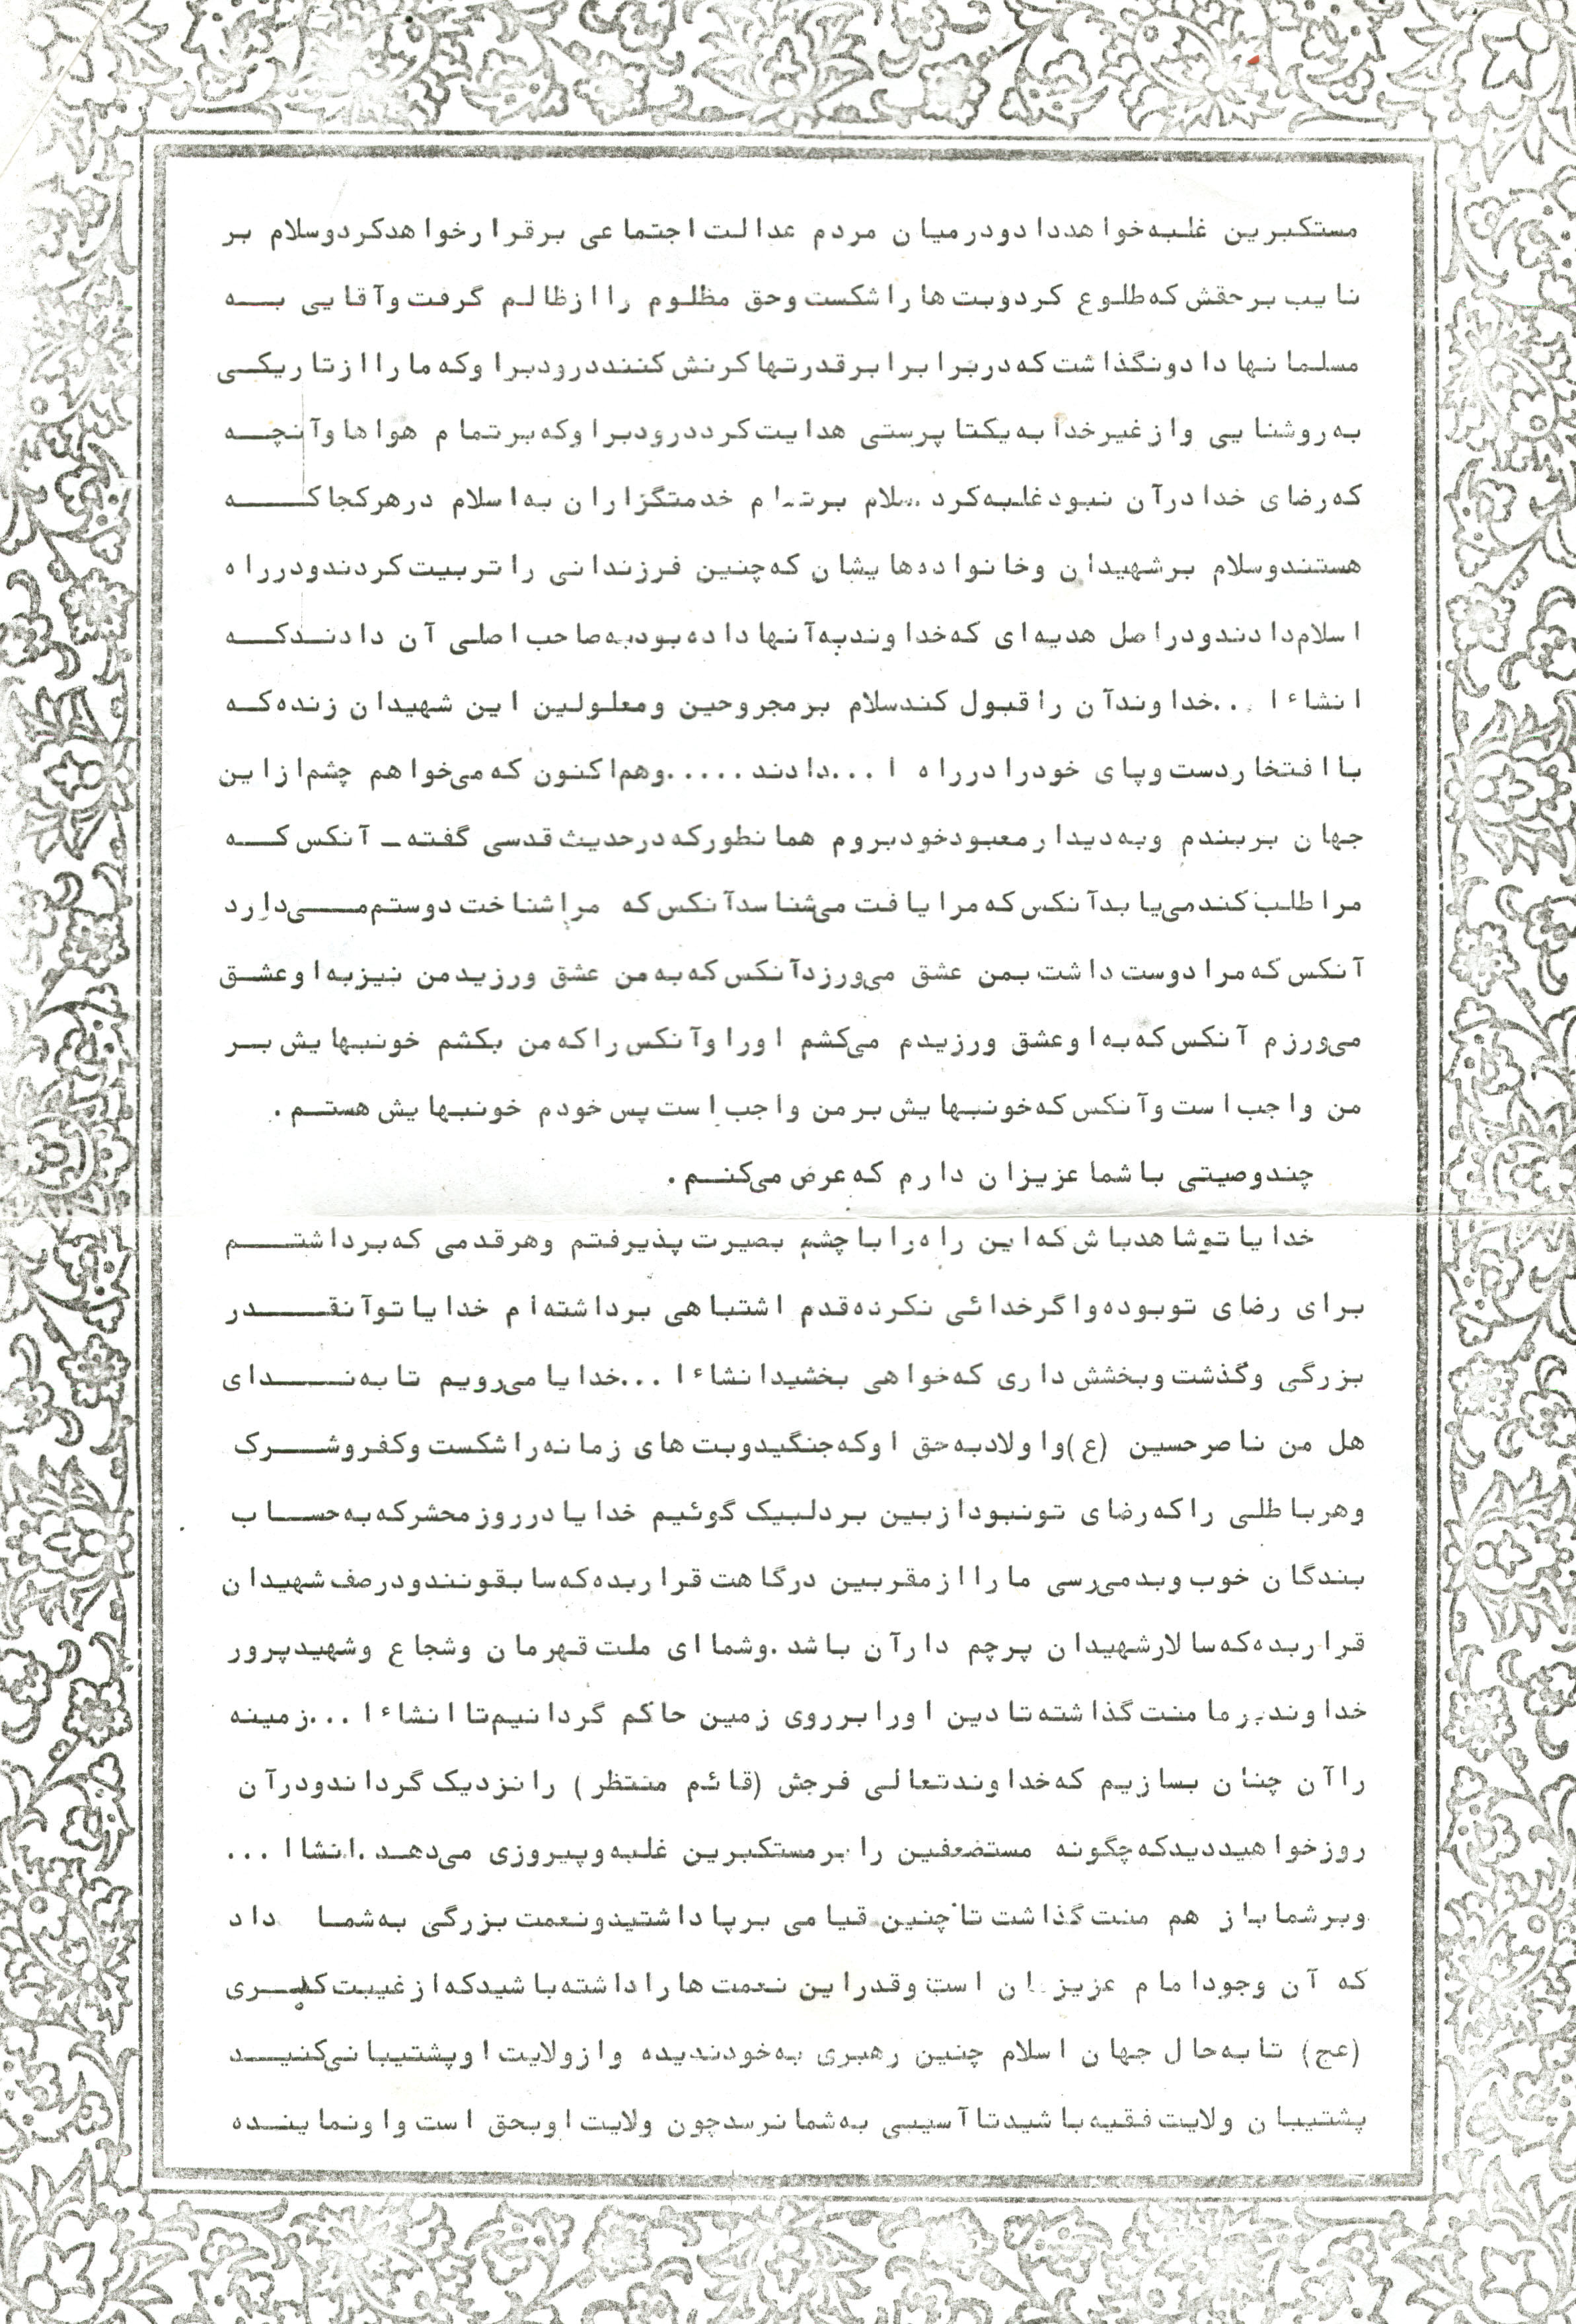 مستکبرین غلبه خواهد داد و در میان مردم عدالت اجتماعی برقرار خواهد کرد و سلام بر
نایب بر حقش که طلوع کرد و بت ها را شکست و حق مظلوم را از ظالم گرفت و آقایی به
مسلمانها داد و نگذاشت که در برابر ابرقدرتها کرنش کنند درود بر او که ما را از تاریکی
به روشنایی و از غیر خدا به یکتا پرستی هدایت کرد درود بر او که بر تمام هواها و آنچه
که رضای خدا در آن نبود غلبه کرد .سلام بر تمام خدمتگزاران به اسلام در هر کجا که
هستند و سلام بر شهیدان و خانواده هایشان که چنین فرزندانی را تربیت کردند و در راه
اسلام دادند و در اصل هدیه ای که خداوند به آنها داده بود به صاحب اصلی آن دادند که
انشاء ا ...خداوند آن را قبول کند سلام بر مجروحین و معلولین این شهیدان زنده که
با افتخار دست و پای خود را در راه ا ...دادند .....و هم اکنون که می‌خواهم چشم از این
جهان بربندم و به دیدار معبود خود بروم همانطور که در حدیث قدسی گفته ـ آنکس که
مرا طلب کند می‌یابد آنکس که مرا یافت می‌شناسد آنکس که مرا شناخت دوستم می‌دارد
آنکس که مرا دوست داشت بمن عشق می‌ورزد آنکس که به من عشق ورزید من نیز به او عشق
می‌ورزم آنکس که به او عشق ورزیدم می‌کشم او را و آنکس را که من بکشم خونبهایش بر
من واجب است و آنکس که خونبهایش بر من واجب است پس خودم خونبهایش هستم .
چند وصیتی با شما عزیزان دارم که عرض می‌کنم .
خدایا تو شاهد باش که این راه را با چشم بصیرت پذیرفتم و هر قدمی که برداشتم
برای رضای تو بوده و اگر خدائی نکرده قدم اشتباهی برداشته ام خدایا تو آنقدر
بزرگی و گذشت و بخشش داری که خواهی بخشید انشاء ا ...خدایا می‌رویم تا به ندای
هل من ناصر حسین (ع) و اولاد به حق او که جنگید و بت های زمانه را شکست و کفر و شرک
و هر باطلی را که رضای تو نبود از بین برد لبیک گوئیم خدایا در روز محشر که به حساب
بندگان خوب و بد می‌رسی ما را از مقربین درگاهت قرار بده که سابقونند و در صف شهیدان
قرار بده که سالار شهیدان پرچم دار آن باشد .و شما ای ملت قهرمان و شجاع و شهید پرور
خداوند بر ما منت گذاشته تا دین او را بر روی زمین حاکم گردانیم تا انشاء ا ...زمینه
را آن چنان بسازیم که خداوند تعالی فرجش (قائم منتظر) را نزدیک گرداند و در آن
روز خواهید دید که چگونه مستضعفین را بر مستکبرین غلبه و پیروزی می‌دهد .انشاا ...
و بر شما باز هم منت گذاشت تا چنین قیامی برپا داشتید و نعمت بزرگی به شما داد
که آن وجود امام عزیزمان است و قدر این نعمت ها را داشته باشید که از غیبت کبری
(عج) تا به حال جهان اسلام چنین رهبری به خود ندیده و از ولایت او پشتیبانی کنید
پشتیبان ولایت فقیه باشید تا آسیبی به شما نرسد چون ولایت او بحق است و او نماینده